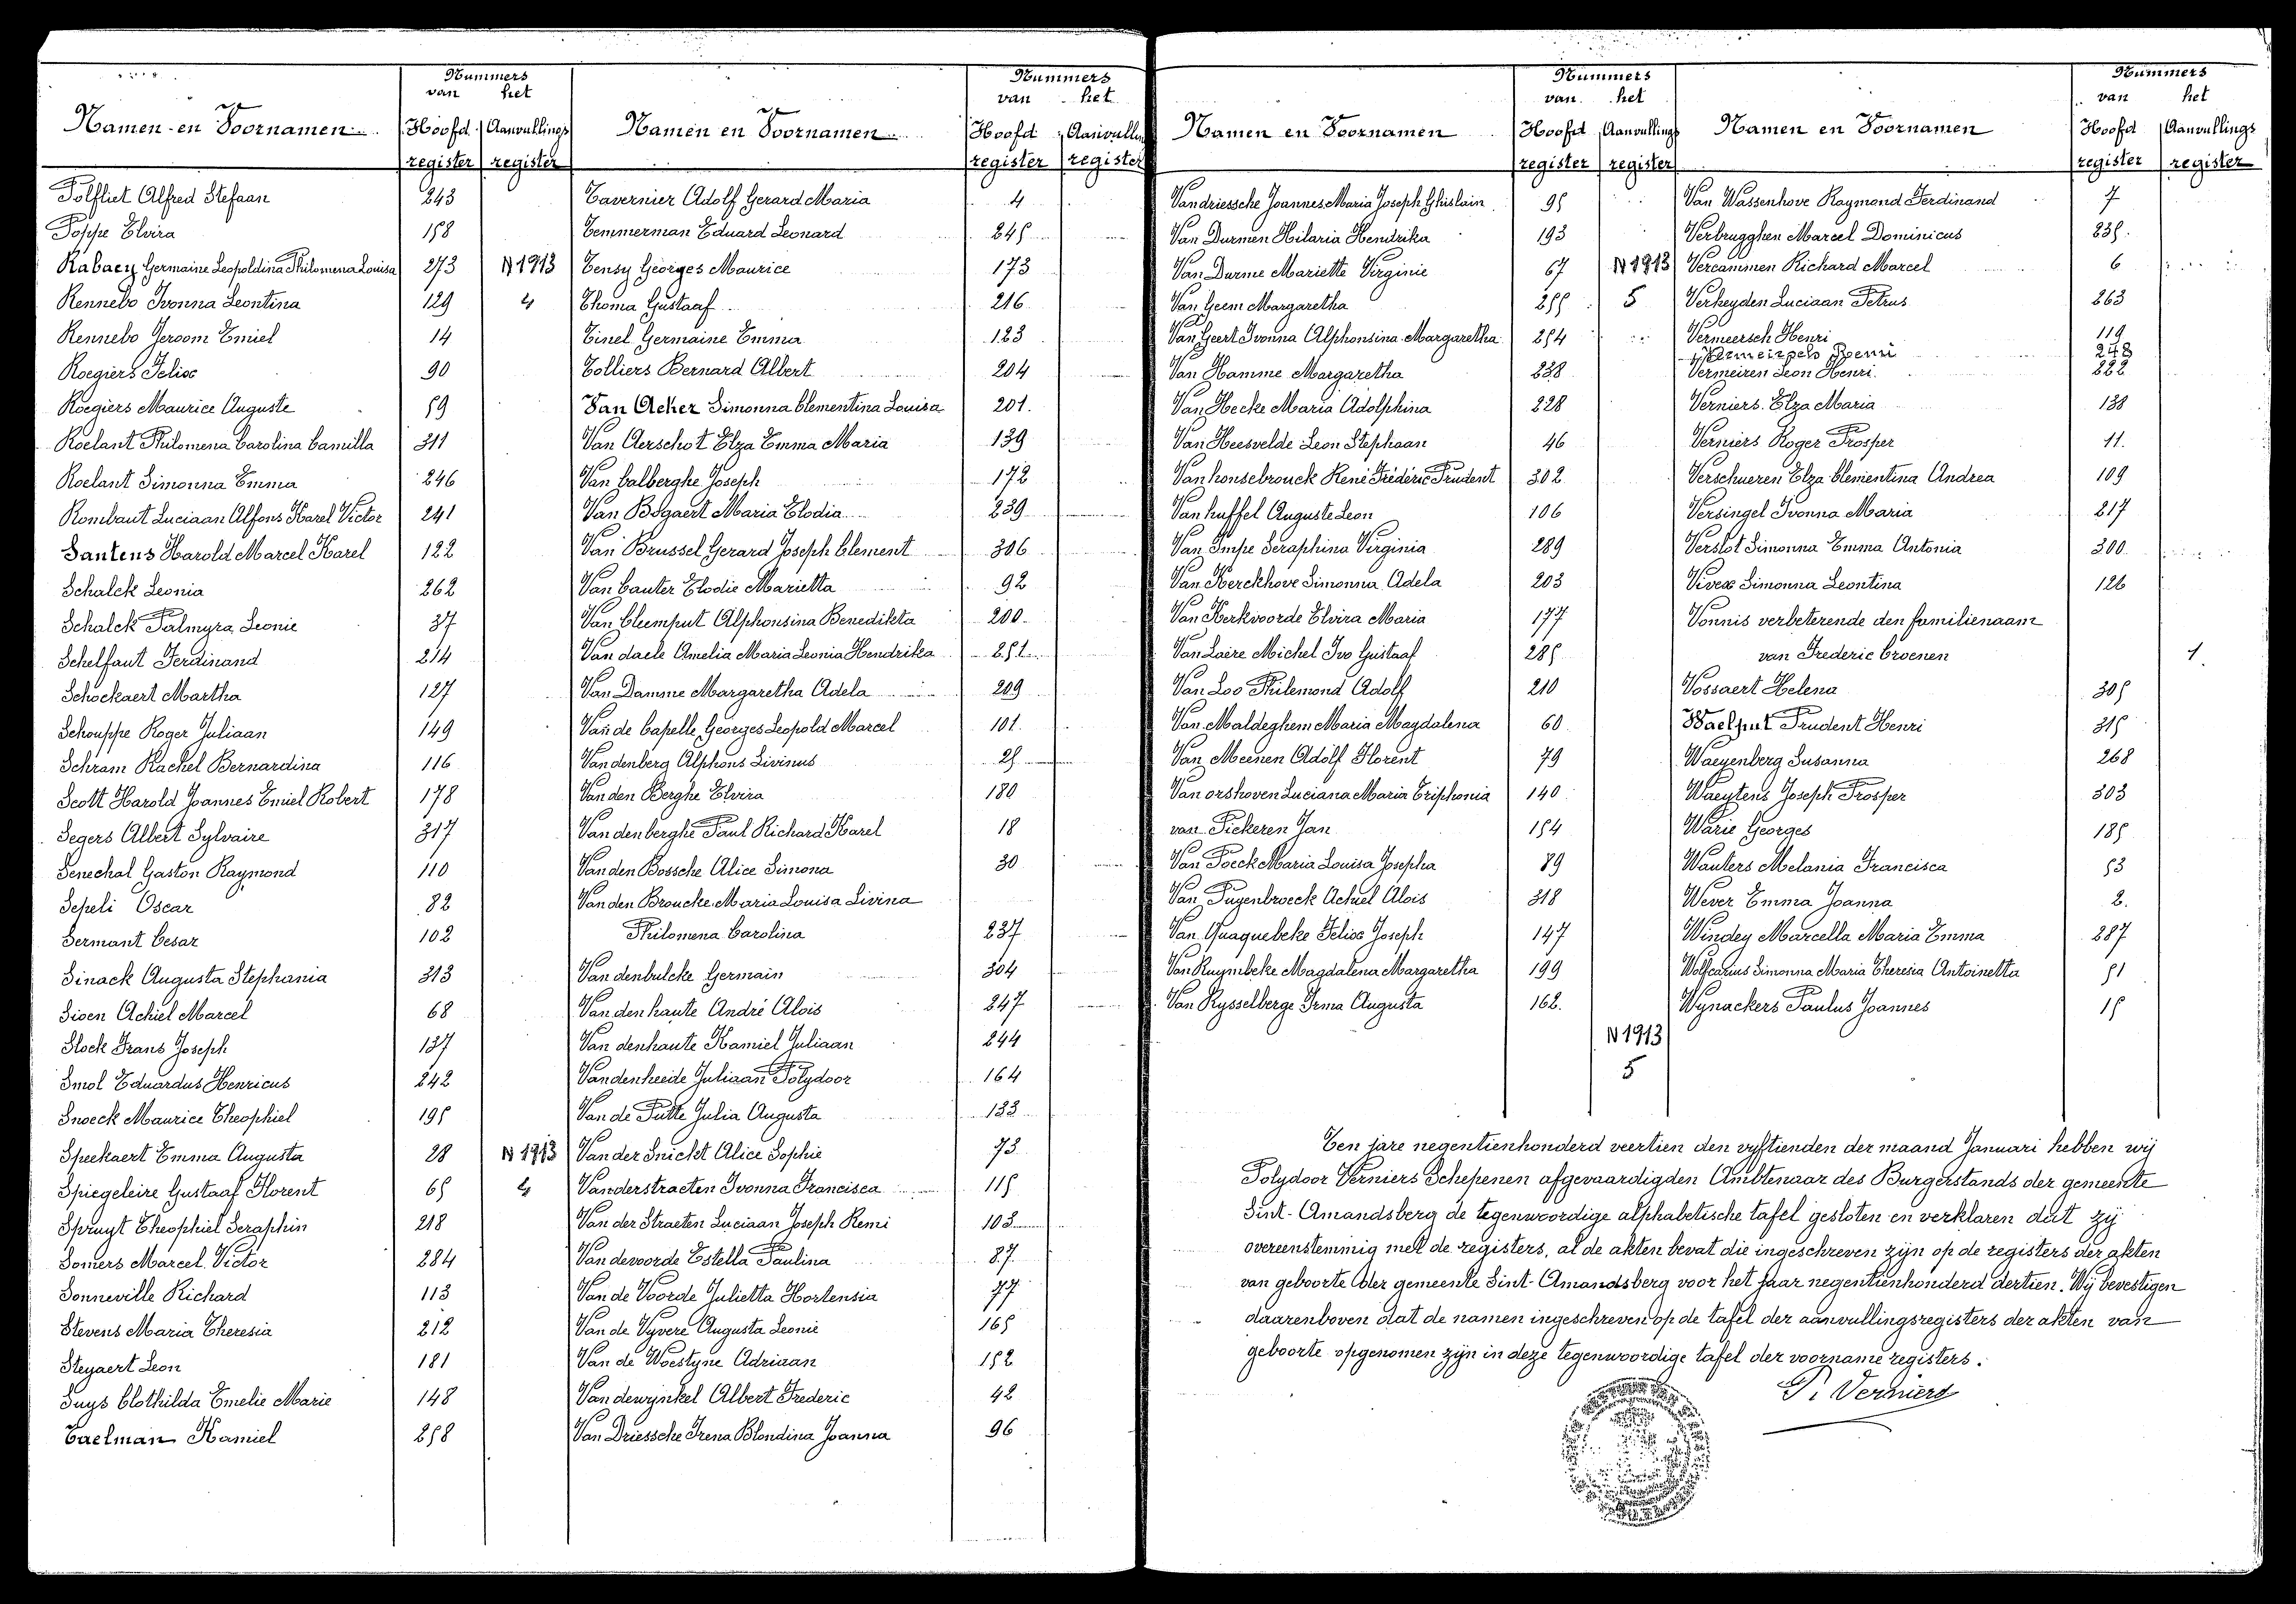 Nummers
van het
Namen en Voornamen Hoofd register Aanvullings register
Polfliet Alfred Stefaan 243
Poppe Elvira 158
Rabaey Germaine Leopoldina Philomena Louisa 273 N 1913
Rennebo Ivonna Leontina 129 4
Rennebo Jeroom Emiel 14
Roegiers Felix 90
Roegiers Maurice Auguste 59
Roelant Philomena Carolina Camilla 311
Roelant Simonna Emma 246
Rombaut Luciaan Alfons Karel Victor 241
Santens Harold Marcel Karel 122
Schalck Leonia 262
Schalck Palmyra Leonie 37
Schelfaut Ferdinand 214
Schockaert Martha 127
Schouppe Roger Juliaan 149
Schram Rachel Bernardina 116
Scott Harold Joannes Emiel Robert 178
Segers Albert Sylvaire 317
Senechal Gaston Raymond 110
Sepeli Oscar 82
Sermant Cesar 102
Sinack Augusta Stephania 313
Sioen Achiel Marcel 68
Slock Frans Joseph 137
Smol Eduardus Henricus 242
Snoeck Maurice Theophiel 195
Speekaert Emma Augusta 28 N 1913
Spiegeleire Gustaaf Florent 65 4
Spruyt Theophiel Seraphin 218
Somers Marcel Victor 284
Sonneville Richard 113
Stevens Maria Theresia 212
Steyaert Leon 181
Suys Clothilda Emelie Marie 148
Taelman Kamiel 258
Nummers
van het
Namen en Voornamen Hoofd register Aanvullings register
Tavernier Adolf Gerard Maria 4
Temmerman Eduard Leonard 245
Tensy Georges Maurice 173
Thoma Gustaaf 216
Tinel Germaine Emma 123
Tolliers Bernard Albert 204
Van Acker Simonna Clementina Louisa 201
Van Aerschot Elza Emma Maria 139
Van Calberghe Joseph 172
Van Bogaert Maria Elodia 239
Van Brussel Gerard Joseph Clement 306
Van Cauter Elodie Marietta 92
Van Cleemput Alphonsina Benedikta 200
Van daele Amelia Maria Leonia Hendrika 251
Van Damme Margaretha Adela 209
Van de Capelle Georges Leopold Marcel 101
Vandenberg Alphons Livinus 25
Van den Berghe Elvira 180
Van denberghe Paul Richard Karel 18
Van den Bossche Alice Simona 30
Van den Broucke Maria Louisa Livina
Philomena Carolina 237
Van denbulcke Germain 304
Van den haute André Alois 247
Van denhaute Kamiel Juliaan 244
Vandenheede Juliaan Polydoor 164
Van de Putte Julia Augusta 133
Van der Snickt Alice Sophie 73
Vanderstraeten Ivonna Francisca 115
Van der Straeten Luciaan Joseph Remi 103
Van devoorde Estella Paulina 87
Van de Voorde Julietta Hortensia 77
Van de Vyvere Augusta Leonie 165
Van de Woestyne Adriaan 152
Van dewynkel Albert Frederic 42
Van Driessche Irena Blondina Joanna 96
Nummers
van het
Namen en Voornamen Hoofd register Aanvullings register
Vandriessche Joannes Maria Joseph Ghislain 95
Van Durmen Hilaria Hendrika 193
Van Durme Mariette Virginie 67 N 1913
Van Geem Margaretha 255 5
Van Geert Ivonna Alphonsina Margaretha 254
Van Hamme Margaretha 238
Van Hecke Maria Adolphina 228
Van Heesvelde Leon Stephaan 46
Van honsebrouck René Fréderic Prudent 302
Van huffel Auguste Leon 106
Van Impe Seraphina Virginia 289
Van Kerckhove Simonna Adela 203
Van Kerkvoorde Elvira Maria 177
Van Laere Michel Ivo Gustaaf 285
Van Loo Philemond Adolf 210
Van Maldeghem Maria Magdalena 60
Van Meenen Adolf Florent 79
Van orshoven Luciana Maria Triphonia 140
van Pickeren Jan 154
Van Poeck Maria Louisa Josepha 89
Van Puyenbroeck Achiel Alois 318
Van Quaquebeke Felix Joseph 147
Van Ruymbeke Magdalena Margaretha 199
Van Rysselberge Irma Augusta 162
N 1913
5
Nummers
van het
Namen en Voornamen Hoofd register Aanvullings register
Van Wassenhove Raymond Ferdinand 7
Verbrugghen Marcel Dominicus 235
Vercammen Richard Marcel 6
Verheyden Luciaan Petrus 263
Vermeersch Henri 119
Remi 248
Vermeiren Leon Henri 222
Verniers Elza Maria 138
Verniers Roger Prosper 11
Verschueren Elza Clementina Andrea 109
Versingel Ivonna Maria 217
Verslot Simonna Emma Antonia 300
Vivex Simonna Leontina 126
Vonnis verbeterende den familienaam
van Frederic Croenen 1
Vossaert Helena 305
Waelput Prudent Henri 315
Waeyenberg Susanna 268
Waeytens Joseph Prosper 303
Warie Georges 185
Wauters Melania Francisca 53
Wever Emma Joanna 2
Windey Marcella Maria Emma 287
Wolfcarius Simonna Maria Theresia Antoinetta 51
Wynackers Paulus Joannes 15
Ten jare negentienhonderd veertien den vyftienden der maand Januari hebben wij
Polydoor Verniers Schepenen afgevaardigden Ambtenaar des Burgerstands der gemeente
Sint-Amandsberg de tegenwoordige alphabetische tafel gesloten en verklaren dat zij
overeenstemmig met de registers, al de akten bevat die ingeschreven zijn op de registers der akten
van geboorte der gemeente Sint-Amandsberg voor het jaar negentienhonderd dertien. Wij bevestigen
daarenboven dat de namen ingeschreven op de tafel der aanvullingsregisters der akten van
geboorte opgenomen zijn in deze tegenwoordige tafel der voorname registers.
P. Verniers